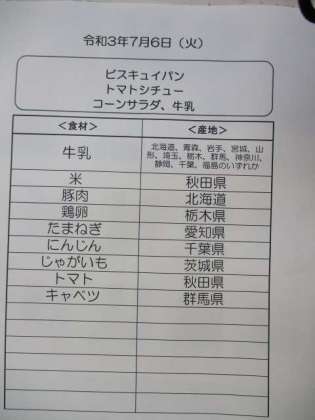 令和3年7月6日（火）
ビスキュイパン
トマトシチュー
コーンサラダ、牛乳
＜食材＞ ＜産地＞
牛乳 北海道、青森、岩手、宮城、山
形、埼玉、栃木、群馬、神奈川、
静岡、千葉、福島のいずれか
米 秋田県
豚肉 北海道
鶏卵 栃木県
たまねぎ 愛知県
にんじん 千葉県
じゃがいも 茨城県
トマト 秋田県
キャベツ 群馬県